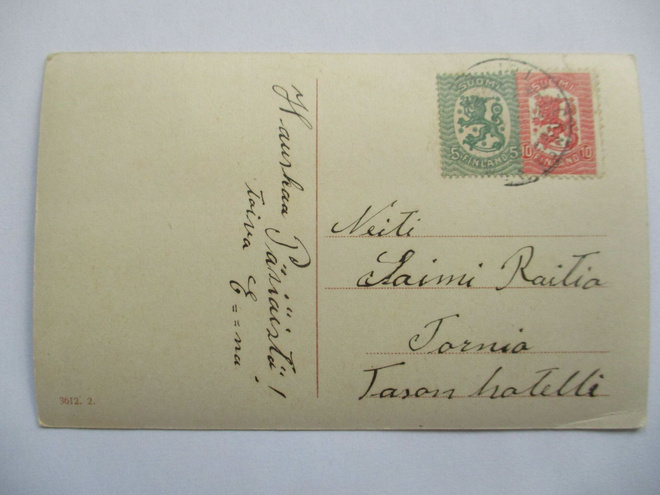 Hauskaa Pääsiäistä!
toivo E==na
SUOMI
5 5
FINLAND
SUOMI
10 10
FINLAND
Neiti
Saimi Raitio
Tornio
Tason hotelli
3612. 2.